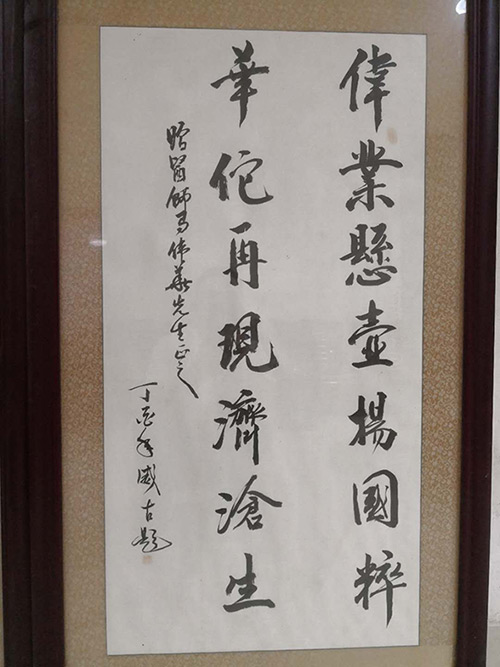 偉業懸壺揚國粹
華佗再現濟滄生
贈醫師馬伟華先生正之
丁酉年 古題